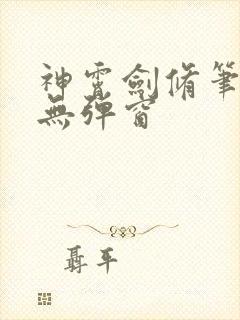 神霄劍脩筆
無彈窗
聶平